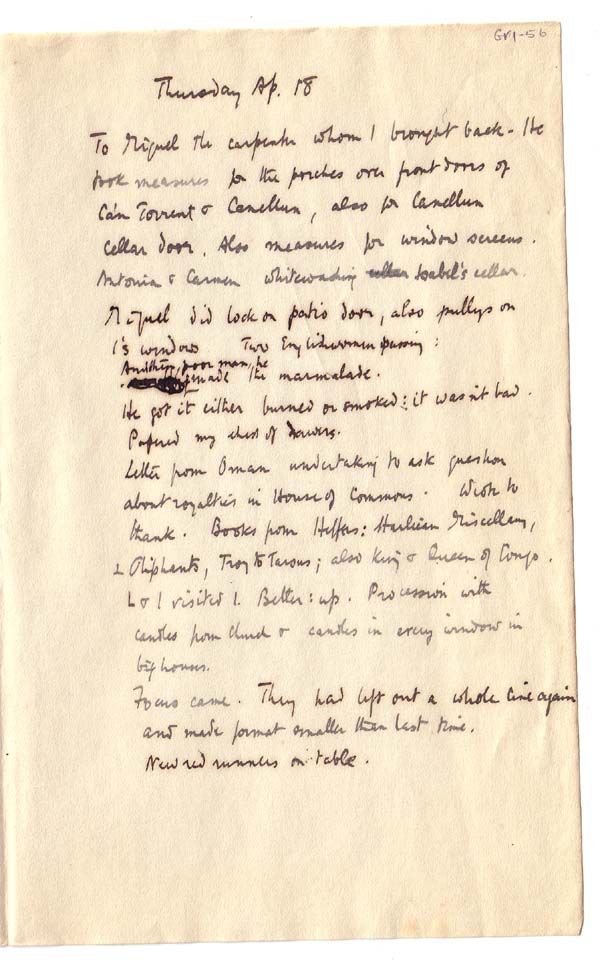 GP1-56
Thursday Ap. 18
To Miguel the carpenter whom I brought back - He
took measures for the porches over front doors of
Ca'n Torrent & Canellun, also for Canellun
cellar door. Also measures for window screens.
Antonia & Carmen whitewashing Isabel's cellar.
Miguel did lock on patio door, also pulleys on
I's windows Two Englishwomen passing:
poor man, he
made the marmalade.
He got it either burned or smoked: it wasn't bad.
Papered my chest of drawers.
Letter from Oman undertaking to ask question
about royalties in House of Commons. Wrote to
thank. Books from Heffers: Harleian Miscellany,
2 Oliphants, Troy to Tarsus; also King & Queen of Congo.
L & I visited I. Better: up. Procession with
candles from church & candles in every window in
big houses.
Focus came. They had left out a whole line again
and made format smaller than last time.
New red runners on table.